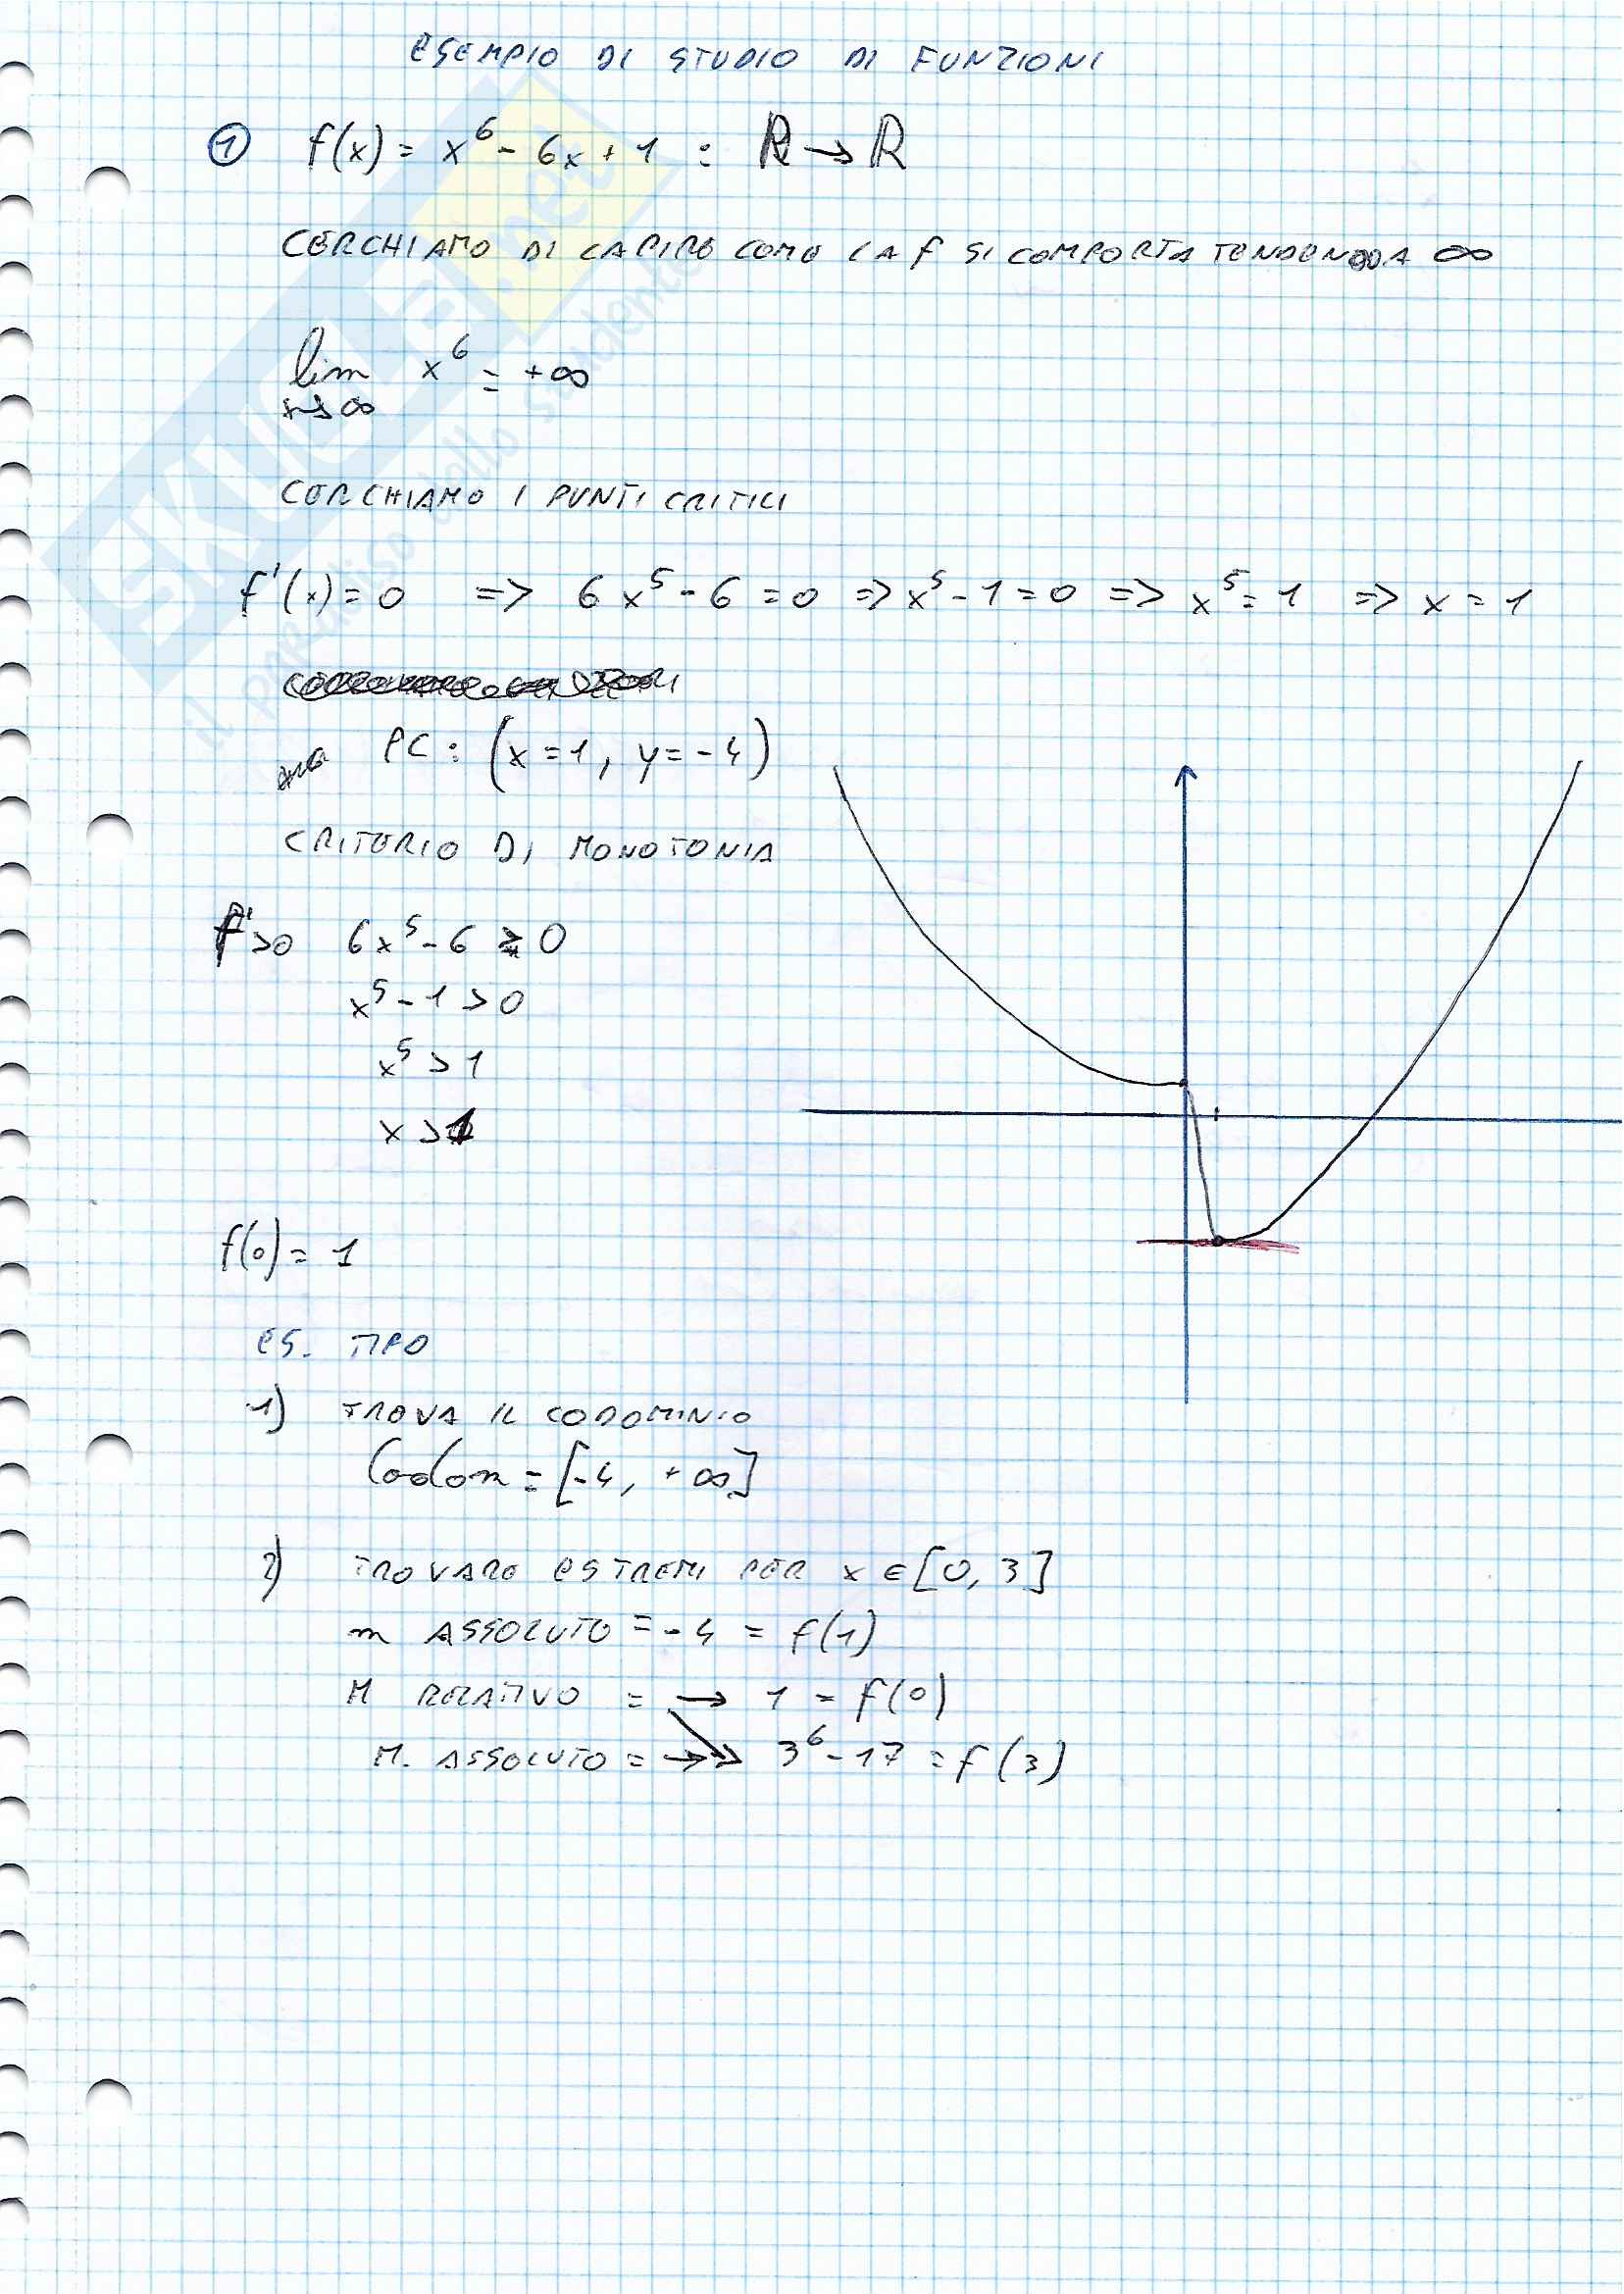 ESEMPIO DI STUDIO DI FUNZIONI
① f(x) = x⁶ - 6x + 1 : ℝ → ℝ
CERCHIAMO DI CAPIRE COME LA f SI COMPORTA TENDENDO A ∞
lim x⁶ = +∞
x→∞
CERCHIAMO I PUNTI CRITICI
f'(x) = 0 => 6x⁵ - 6 = 0 => x⁵ - 1 = 0 => x⁵ = 1 => x = 1
PC: (x = 1, y = -4)
CRITERIO DI MONOTONIA
f' > 0 6x⁵ - 6 ≥ 0
x⁵ - 1 > 0
x⁵ > 1
x > 1
f(0) = 1
ES. TIPO
1) TROVA IL CODOMINIO
Codom = [-4, +∞]
2) TROVARE ESTREMI PER x ∈ [0, 3]
m ASSOLUTO = -4 = f(1)
M RELATIVO = → 1 = f(0)
M. ASSOLUTO = → 3⁶ - 17 = f(3)
SKUOLA.net
il paradiso dello studente